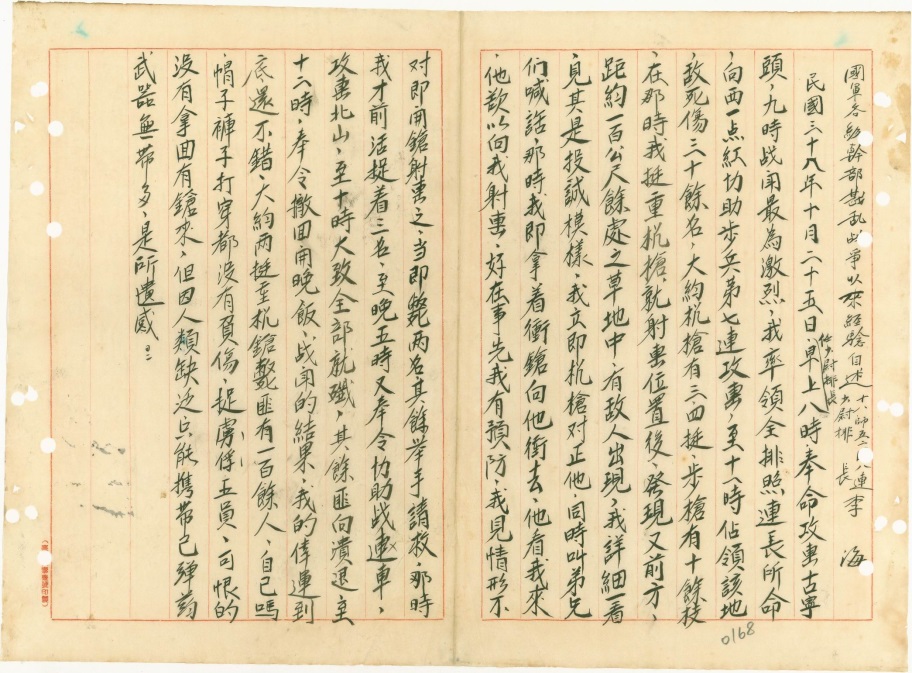 國軍各級幹部戡乱战爭以來經驗自述 十八師五二 八連少尉排長李海
民國三十八年十月二十五日、早上八時奉命攻击古寧
任少尉排長
頭，九時战闻最為激烈，我率領全排照連長所命
，向西一点紅切助步兵第七連攻击，至十一時佔領該地
敌死傷三十餘名，大約机槍有三四挺，步槍有十餘枝
在那時我挺重机槍就射击位置後，發現又前方，
距約一百公尺餘處之草地中，有敌人出現，我詳細一看
，見其是投誠模樣，我立即机槍对正他，同時叫弟兄
们喊話，那時我即拿着衝鎗向他衝去，他看我來
，他欲以向我射击，好在事先我有預防，我見情形不
对即開鎗射击之，当即斃两名其餘举手請救，那時
我才前活捉着三名，至晚五時又奉令协助战車，
攻击北山，至十時大致全部就殲，其餘匪向潰退至
十二時，奉令撤回開晚飯，战闻的结果，我的倖運到
底還不錯，大約两挺重机鎗斃匪有一百餘人，自己嗎
，帽子褲子打穿都没有負傷，捉虜俘五員，可恨的
没有拿回有鎗來，但因人類缺乏只能携帶己彈药
武器無带多，是所遺感！！
0168